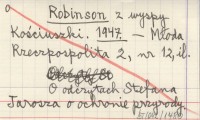 Robinson z wyspy
Kościuszki. 1947. — Młoda
Rzeczpospolita 2, nr 12, il.
O odczytach Stefana
Jarosza o ochronie przyrody.